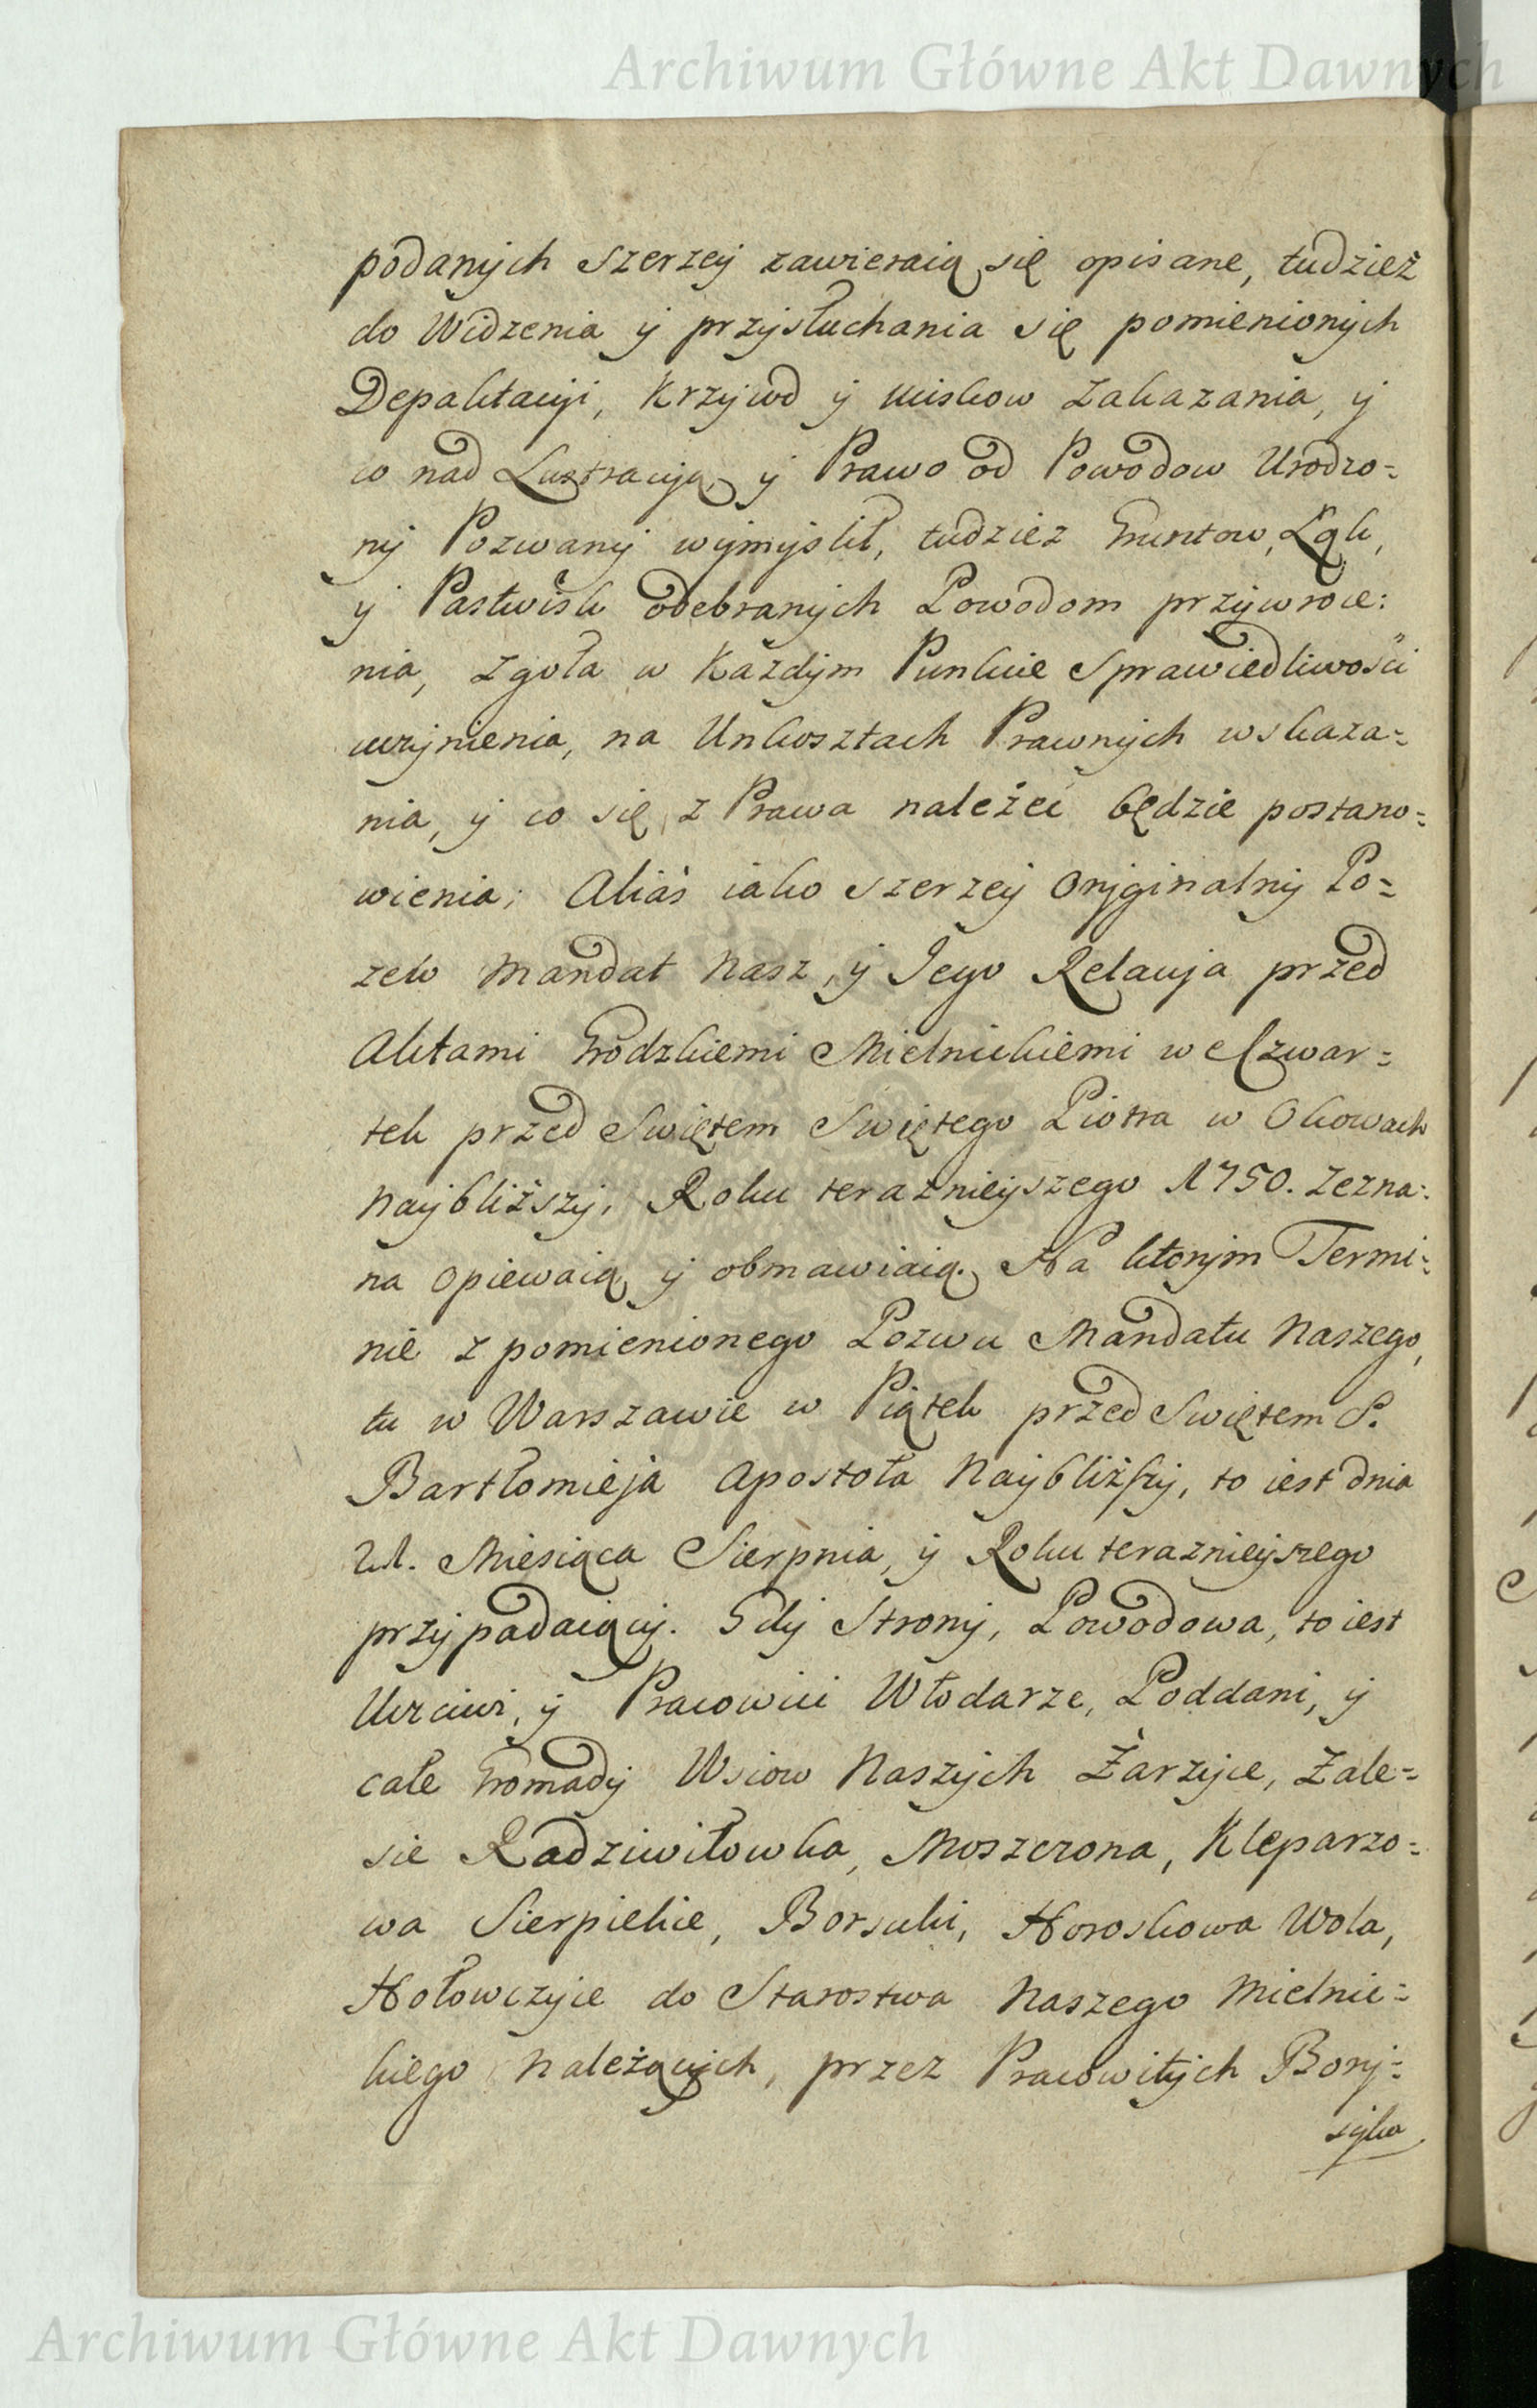 Archiwum Główne Akt Dawnych
podanych szerzey zawieraią się opisane, tudzież
do Widzenia y przysłuchania się pomienionych
Depaktacyi, Krzywd y uciskow zakazania, y
co nad Lustracyą, y Prawo od Powodow Urodzo=
ny Pozwany wymyslił, tudziez Gruntow, Łąk,
y Pastwisk odebranych Powodom przywroce:
nia, zgoła w Każdym Punkcie Sprawiedliwości
uczynienia, na Unkosztach Prawnych wskaza=
nia, y co się z Prawa należeć będzie postano=
wienia; Aliàs iako szerzey Oryginalny Po=
zew Mandat Nasz, y Jego Relacyja przed
Aktami Grodzkiemi Mielnickiemi we Czwar=
tek przed Swiętem Swiętego Piotra w Okowach
Naybliższy, Roku teraznieyszego 1750. Zezna=
na opiewaią y obmawiaią. Na ktorym Termi=
nie z pomienionego Pozwu Mandatu Naszego,
tu w Warszawie w Piątek przed Swiętem S.
Bartłomieja Apostoła Naybliższy, to iest dnia
21. Miesiąca Sierpnia, y Roku teraznieyszego
przypadaiący. Gdy Strony, Powodowa, to iest
Uczciwi, y Pracowici Włodarze, Poddani, y
całe Gromady Wsiow Naszych Żarzyce, Zale=
sie Radziwiłowka, Moszczona, Kleparzo=
wa Sierpielice, Borsuki, Horoskowa Wola,
Hołowczyce do Starostwa Naszego Mielnic=
kiego Należących, przez Pracowitych Bory=
syka
Archiwum Główne Akt Dawnych